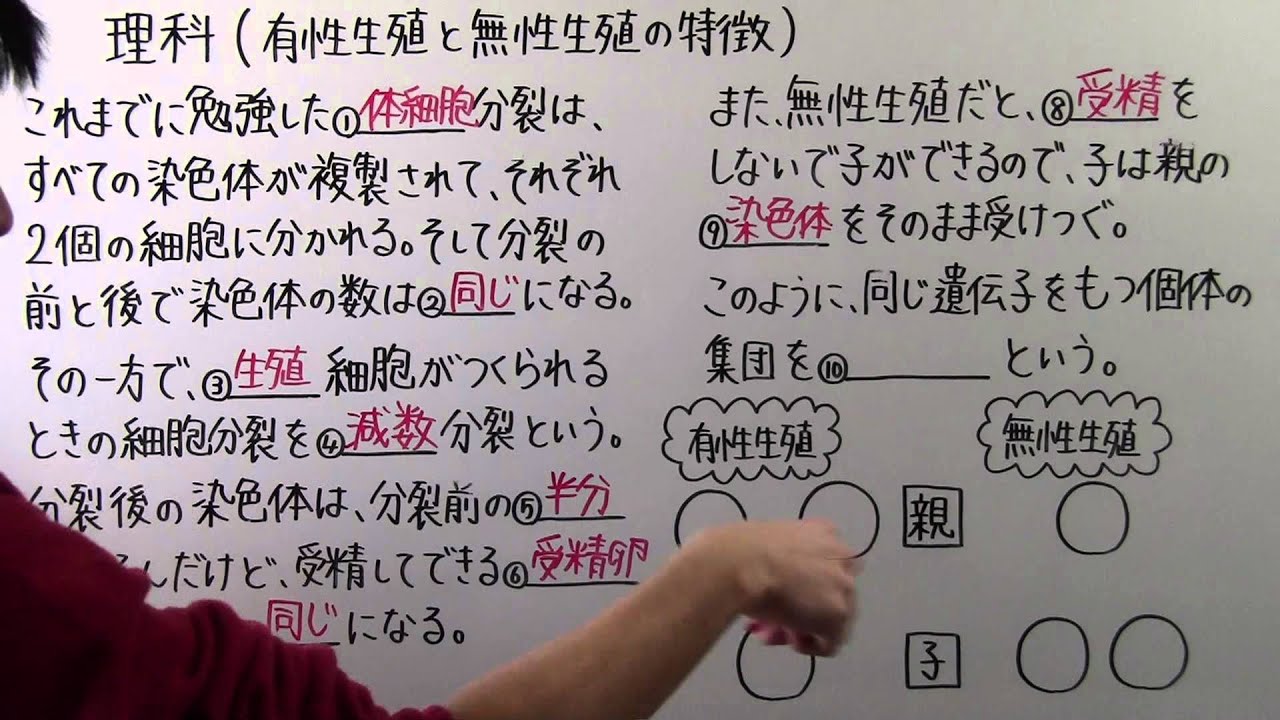 理科(有性生殖と無性生殖の特徴)
これまでに勉強した①体細胞分裂は、
すべての染色体が複製されて、それぞれ
2個の細胞に分かれる。そして分裂の
前と後で染色体の数は②同じになる。
その一方で、③生殖細胞がつくられる
ときの細胞分裂を④減数分裂という。
分裂後の染色体は、分裂前の⑤半分
んだけど、受精してできる⑥受精卵
同じになる。
また、無性生殖だと、⑧受精を
しないで子ができるので、子は親の
⑨染色体をそのまま受けつぐ。
このように、同じ遺伝子をもつ個体の
集団を⑩ という。
有性生殖
無性生殖
親
子